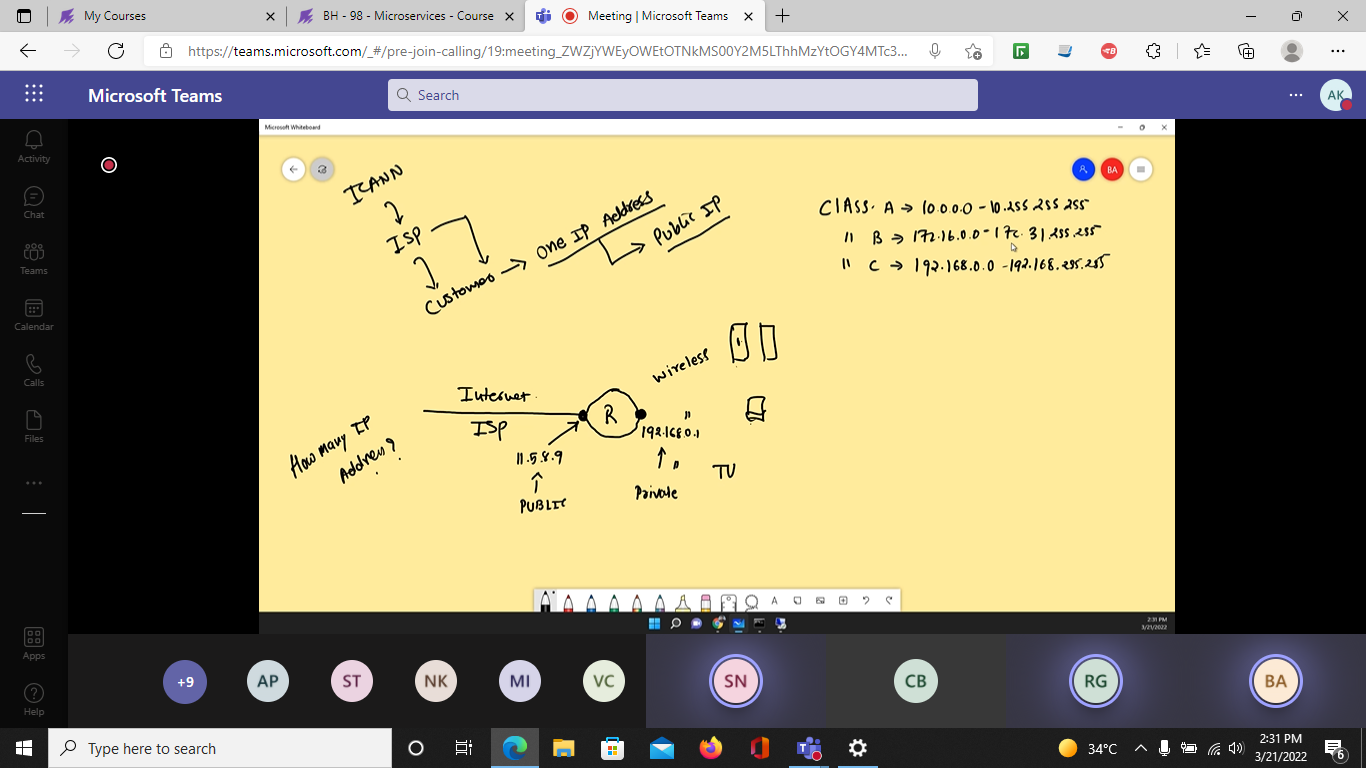 My Courses
BH - 98 - Microservices - Course
Meeting | Microsoft Teams
https://teams.microsoft.com/_#/pre-join-calling/19:meeting_ZWZjYWEyOWEtOTNkMS00Y2M5LThhMzYtOGY4MTc3...
Microsoft Teams
Search
AK
Activity
Chat
Teams
Calendar
Calls
Files
Apps
Help
Microsoft Whiteboard
BA
ICANN
ISP
Customer
One IP Address
Public IP
CLASS. A → 10.0.0.0 - 10.255.255.255
" B → 172.16.0.0 - 172.31.255.255
" C → 192.168.0.0 - 192.168.255.255
wireless
Internet
ISP
R
"
192.168.0.1
11.5.8.9
PUBLIC
"
Private
TV
How many IP
Address?
A
2:31 PM
3/21/2022
+9
AP
ST
NK
MI
VC
SN
CB
RG
BA
Type here to search
34°C
2:31 PM
3/21/2022
6